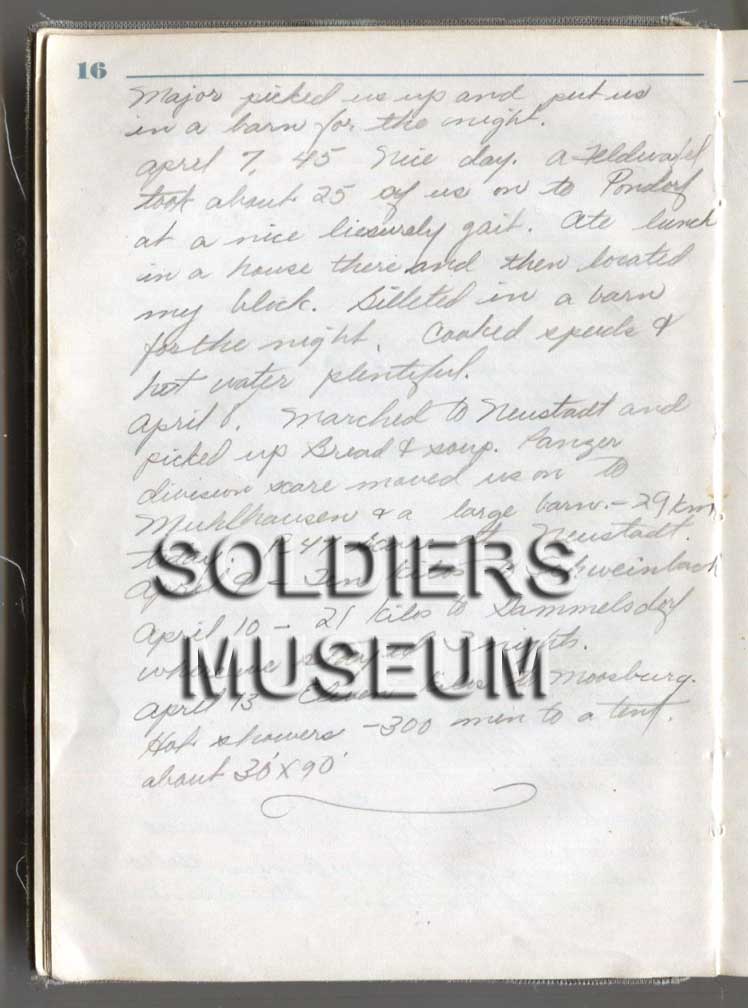 16
Major picked us up and put us
in a barn for the night.
April 7, 45 Nice day. A
took about 25 of us on to Pondorf
at a nice liesurely gait. Ate lunch
in a house there and then located
my block. Billeted in a barn
for the night. Cooked spuds &
hot water plentiful.
April 8. Marched to Neustadt and
picked up Bread & soup. Panzer
division scare moved us on to
Muhlhausen & a large barn. - 29 km.
today. Neustadt.
SOLDIERS
April 9 - Ten kilos to
April 10 - 21 kilos to Dammelsdorf
where we stayed 3 nights.
MUSEUM
April 13 Moosburg.
Hot showers - 300 men to a tent.
about 30' X 90'